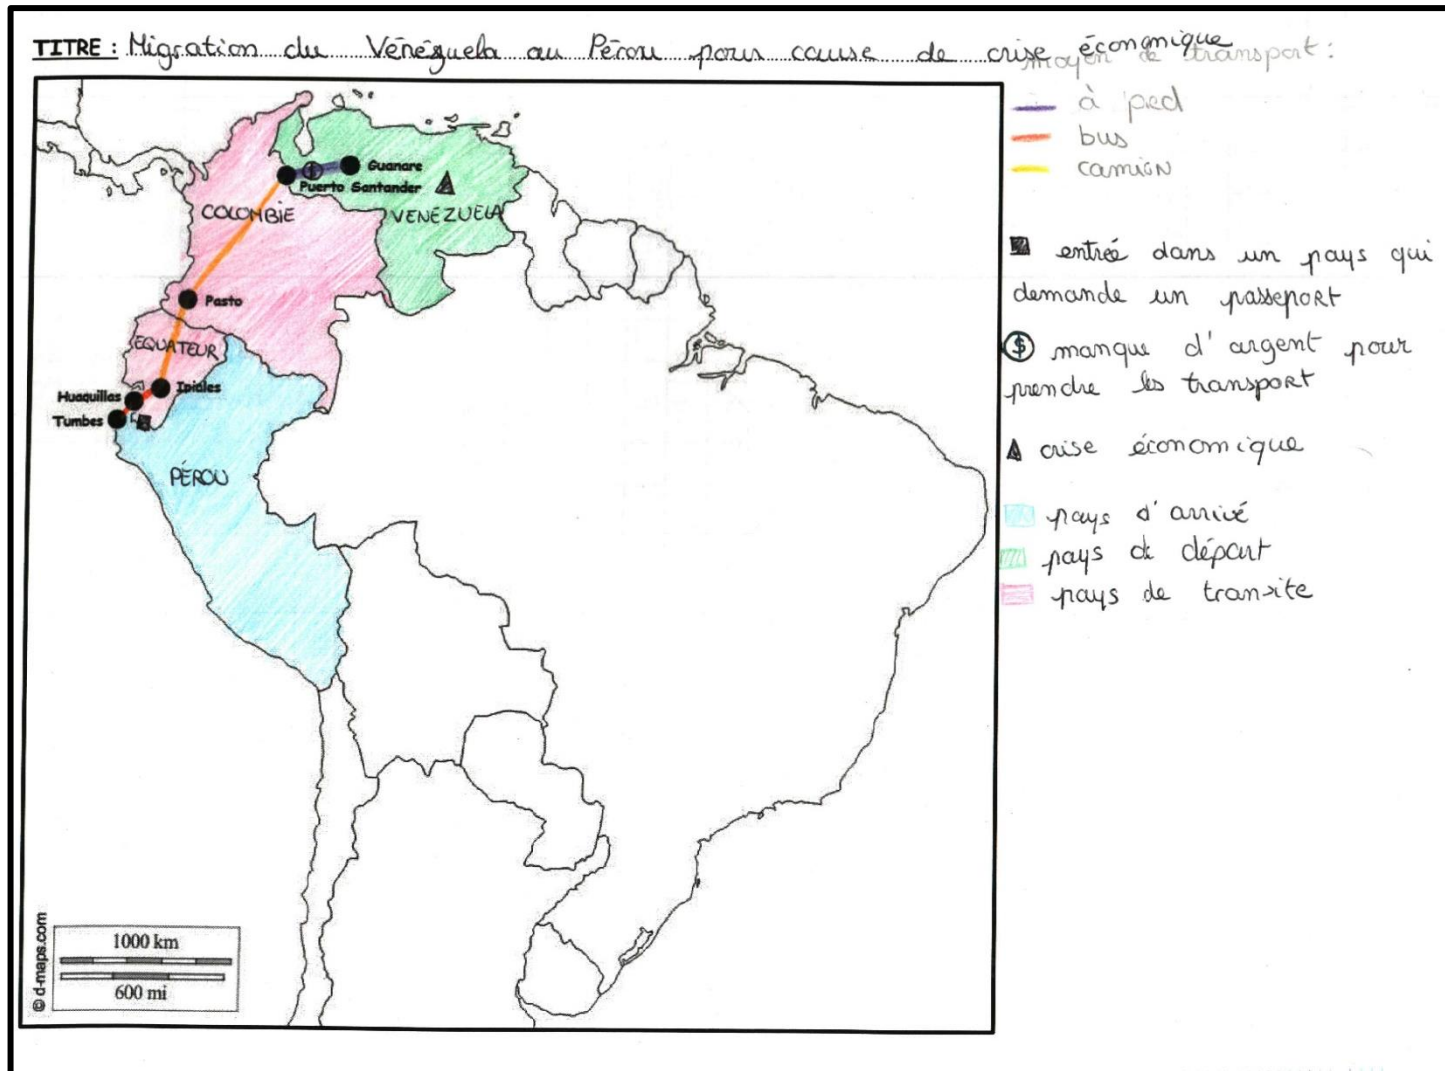 TITRE : Migration du Vénézuela au Pérou pour cause de crise économique
moyen de transport :
à pied
bus
camion
entrée dans un pays qui
demande un passeport
$ manque d'argent pour
prendre les transport
crise économique
pays d'arrivé
pays de départ
pays de transite
Guanare
$
Puerto Santander
COLOMBIE
VENEZUELA
Pasto
EQUATEUR
Ipiales
Huaquillas
Tumbes
PÉROU
1000 km
600 mi
© d-maps.com